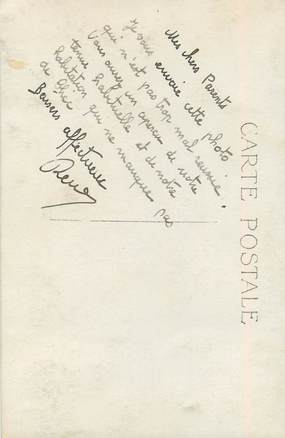 Mes chers Parents
Je vous envoie cette photo
qui n'est pas trop mal reussie.
Vous aurez un apercu de notre
tenue habituelle et de notre
habitation qui ne manque pas
de chic
Baisers affectueux
CARTE POSTALE